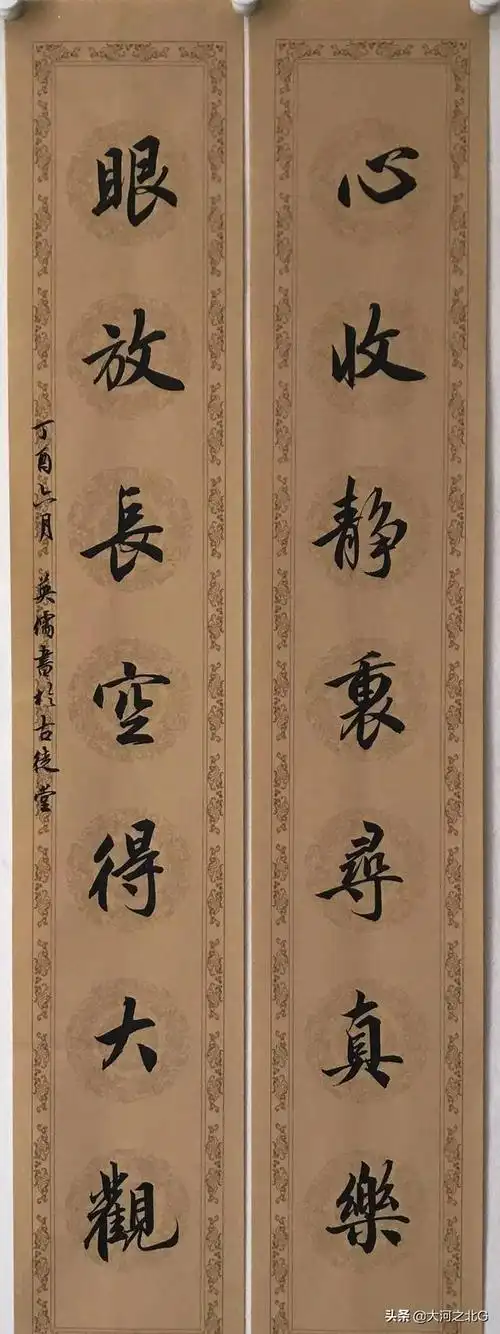 心收静裏尋真樂
眼放長空得大觀
丁酉六月 英儒書於古徒堂
头条 @大河之北G